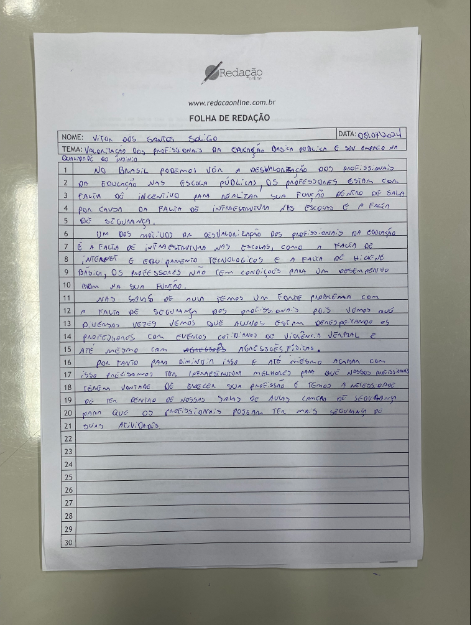 Redação
online
www.redacaonline.com.br
FOLHA DE REDAÇÃO
NOME: VITOR DOS SANTOS DATA: 08/07/2024
TEMA: VALORIZAÇÃO DOS PROFISSIONAIS DA EDUCAÇÃO BÁSICA PÚBLICA E SEU EMPENHO NA
QUALIDADE DO ENSINO
1 NO BRASIL PODEMOS VER A DESVALORIZAÇÃO DOS PROFISSIONAIS
2 DA EDUCAÇÃO NAS ESCOLA PÚBLICAS, OS PROFESSORES ESTAM COM
3 FALTA DE INCENTIVO PARA REALIZAR SUA FUNÇÃO DENTRO DE SALA
4 POR CAUSA DA FALTA DE INFRAESTRUTURA NAS ESCOLAS E A FALTA
5 DE SEGURANÇA.
6 UM DOS MOTIVOS DA DESVALORIZAÇÃO DOS PROFISSIONAIS DA EDUCAÇÃO
7 É A FALTA DE INFRAESTRUTURA NAS ESCOLAS, COMO A FALTA DE
8 INTERNET E EQUIPAMENTO TECNOLOGICOS E A FALTA DE HIGIENE
9 BÁSICA, OS PROFESSORES NÃO TEM CONDIÇÕES PARA UM DESEMPENHO
10 BOM NA SUA FUNÇÃO.
11 NAS SALAS DE AULA TEMOS UM FORTE PROBLEMA COM
12 A FALTA DE SEGURANÇA DOS PROFISSIONAIS POIS VEMOS QUE
13 DIVERSAS VEZES VEMOS QUE ALUNOS ESTAM DESRESPEITANDO OS
14 PROFESSORES COM EVENTOS COTIDIANOS DE VIOLÊNCIA VERBAL E
15 ATÉ MESMO COM AGRESSÕES FÍSICAS.
16 PORTANTO PARA DIMINUIR ISSO E ATÉ MESMO ACABAR COM
17 ISSO PRECISAMOS TER INFRAESTRUTURA MELHORES PARA QUE NOSSOS PROFISSIONAIS
18 TENHA VONTADE DE EXERCER SUA PROFISSÃO E TEMOS A NECESSIDADE
19 DE TER DENTRO DE NOSSAS SALAS DE AULAS CAMERAS DE SEGURANÇA
20 PARA QUE OS PROFISSIONAIS POSSAM TER MAIS SEGURANÇA DE
21 SUAS ATIVIDADES.
22
23
24
25
26
27
28
29
30